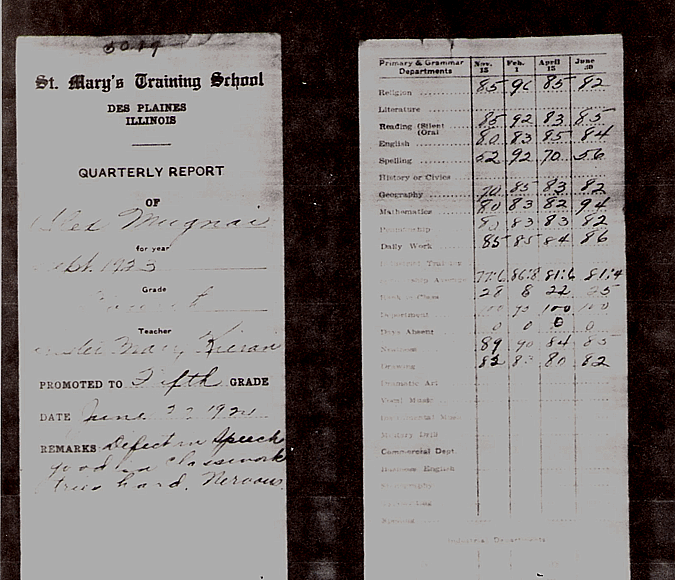 St. Mary's Training School
DES PLAINES
ILLINOIS
QUARTERLY REPORT
OF
Alex Mugnai
for year
Sept. 1923
Grade
Teacher
Sister Mary Kieran
PROMOTED TO Fifth GRADE
DATE June 192
REMARKS Defect in speech
good in classwork
tries hard. Nervous
Primary & Grammar Departments Nov. 15 Feb. 1 April 15 June 30
Religion 85 96 85 82
Literature
Reading (Silent 85 92 83 85
(Oral 80 83 85 84
English
Spelling 52 92 70 56
History or Civics
Geography 70 85 83 82
Mathematics 80 83 82 94
Penmanship 83 83 82
Daily Work 85 85 84 86
Average 77.6 86.8 81.6 81.4
Rank in Class 28 8 22 25
Deportment 100 100
Days Absent 0 0 0 0
Neatness 89 90 84 85
Drawing 82 80 82
Dramatic Art
Vocal Music
Instrumental Music
Military Drill
Commercial Dept
Business English
Industrial Departments